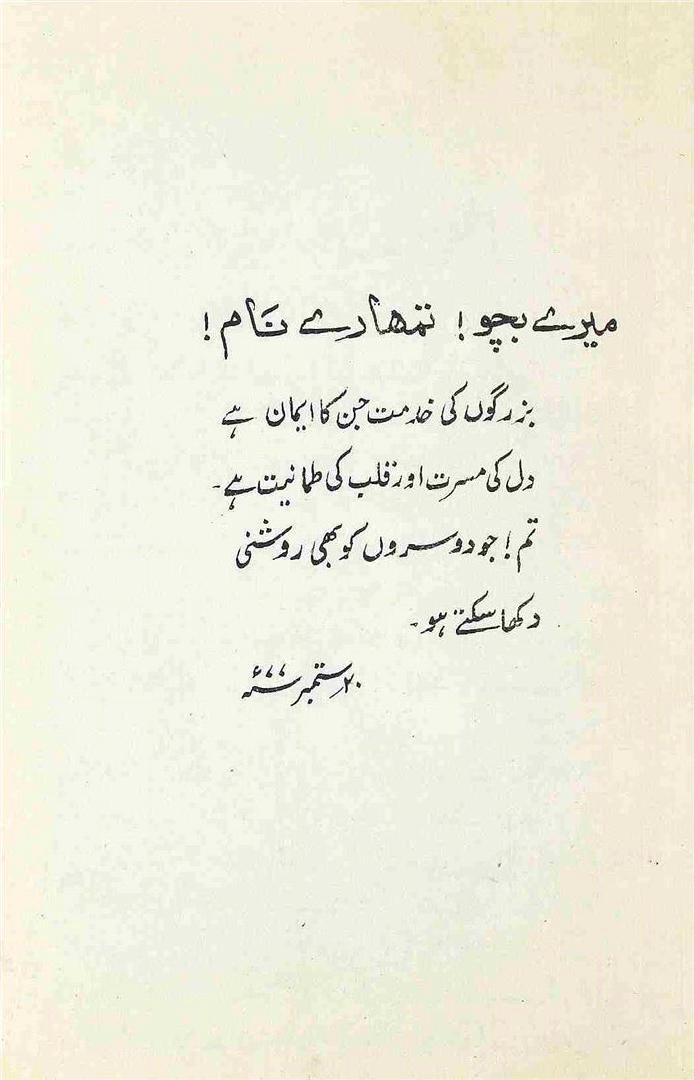 میرے بچو! تمھارے نام!
بزرگوں کی خدمت جن کا ایمان ہے
دل کی مسرت اور قلب کی طمانیت ہے۔
تم! جو دوسروں کو بھی روشنی
دکھا سکتے ہو۔
۲۰ ستمبر ۷۷ء